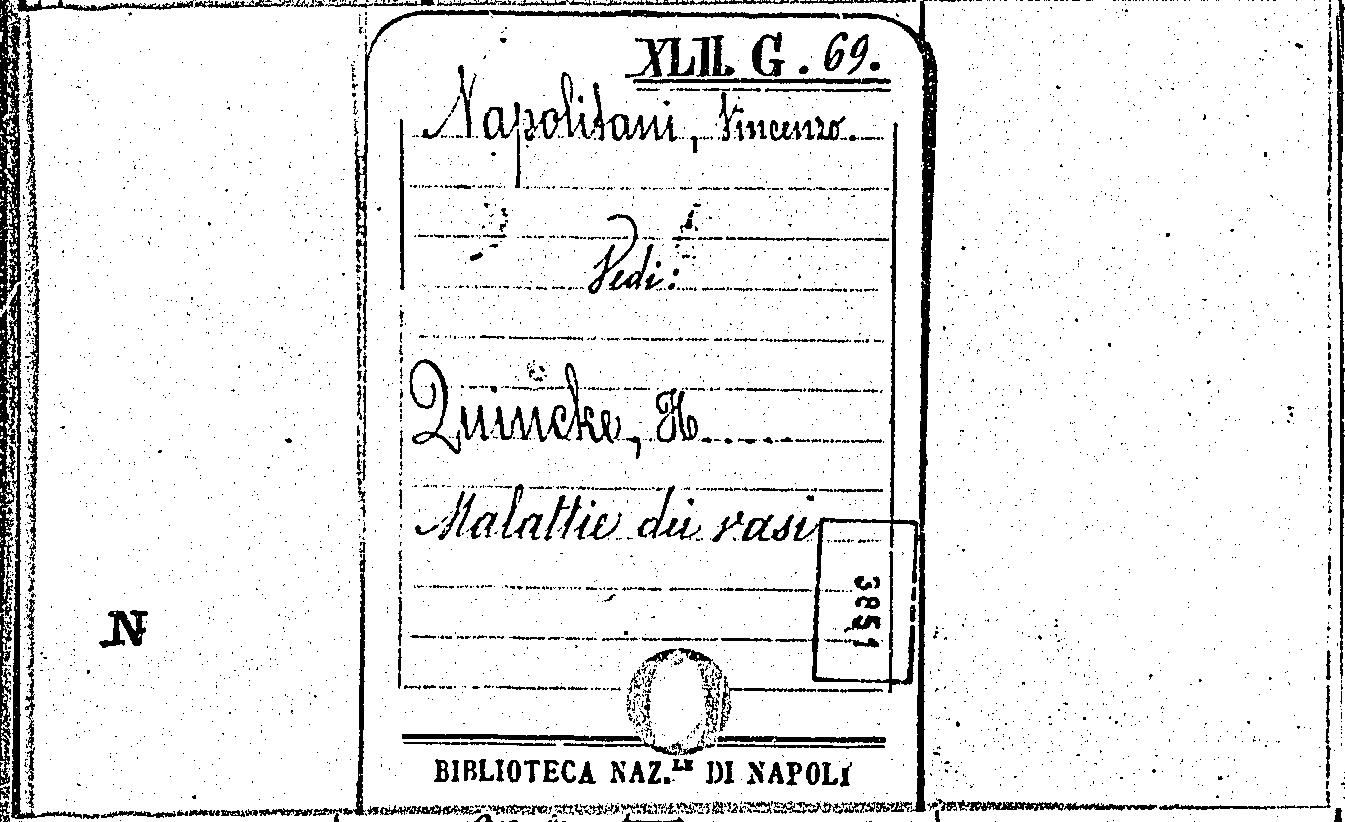 XLII. G. 69.
Napolitani, Vincenzo.
Vedi:
Quincke, H.....
Malattie dei vasi
3851
N
BIBLIOTECA NAZ.LE DI NAPOLI